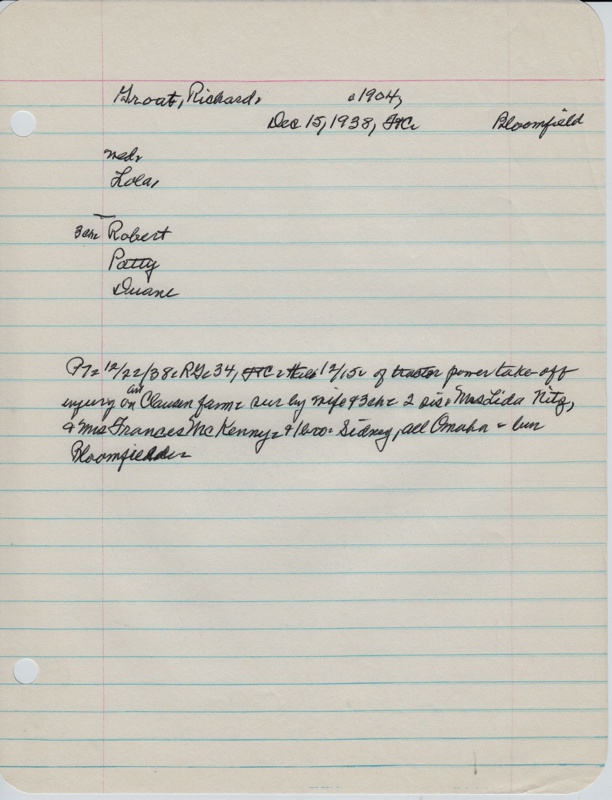 Grout, Richard, c1904,
Dec 15, 1938, Bloomfield
med.
Lola,
3 ch: Robert
Patty
Duane
12/22/38: RG: 34, 12/15: of tractor power take-off
injury on Clausen farm: sur by wife & 3 ch: 2 sis: Mrs Lida Nitz,
& Mrs Frances McKenny: & bro: Sidney, all Omaha - bur
Bloomfield